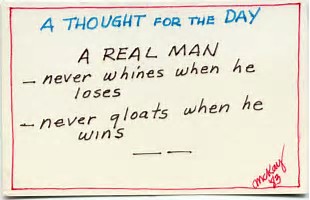 A THOUGHT FOR THE DAY
A REAL MAN
- never whines when he
loses
- never gloats when he
wins
— —
McKay
'93